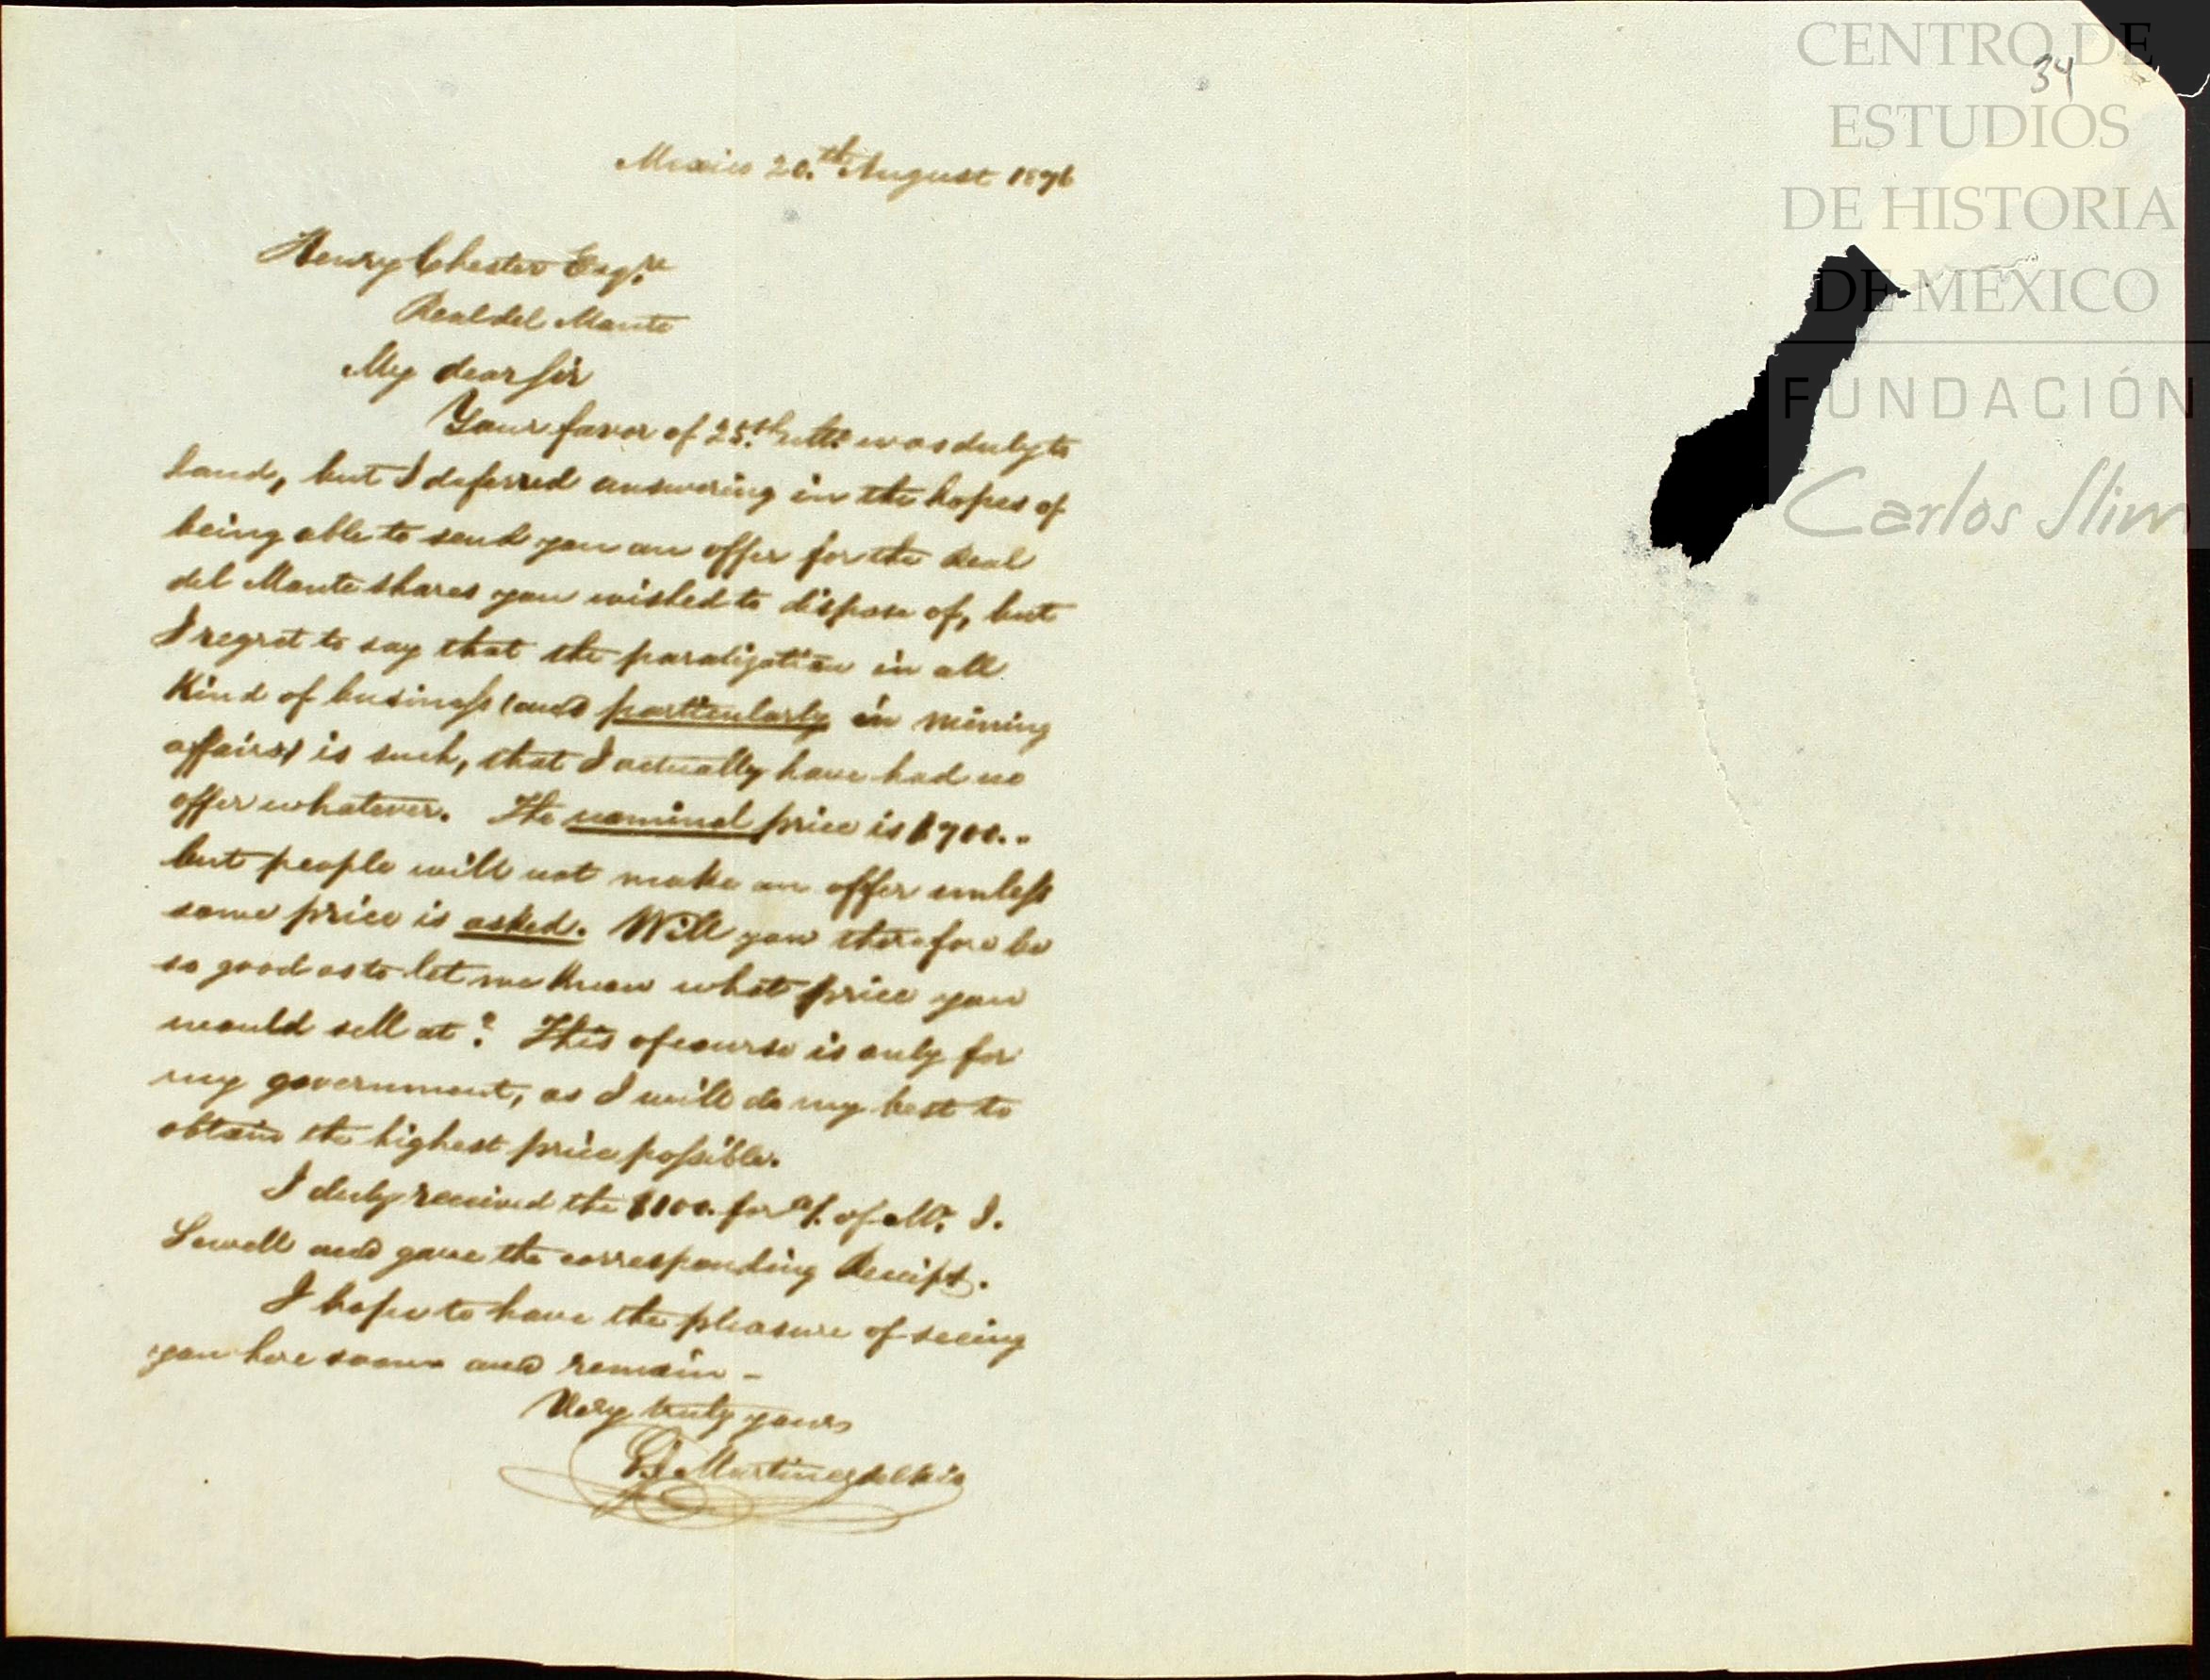 Mexico 20.th August 1876
Henry Chester Esqre
Real del Monte
My dear Sir
Your favor of 25th ulto was duly to
hand, but I deferred answering in the hopes of
being able to send you an offer for the Real
del Monte shares you wished to dispose of, but
I regret to say that the paralization in all
Kind of business (and particularly in mining
affairs) is such, that I actually have had no
offer whatever. The nominal price is $700..
but people will not make an offer unless
some price is asked. Will you therefore be
so good as to let me Know what price you
would sell at? This of course is only for
my government, as I will do my best to
obtain the highest price possible.
I duly received the $100. for a/. of Mr. I.
Sewell and gave the corresponding Receipt.
I hope to have the pleasure of seeing
you here soon and remain -
Very truly yours
Martinez del Rio
34
CENTRO DE
ESTUDIOS
DE HISTORIA
DE MEXICO
FUNDACIÓN
Carlos Slim